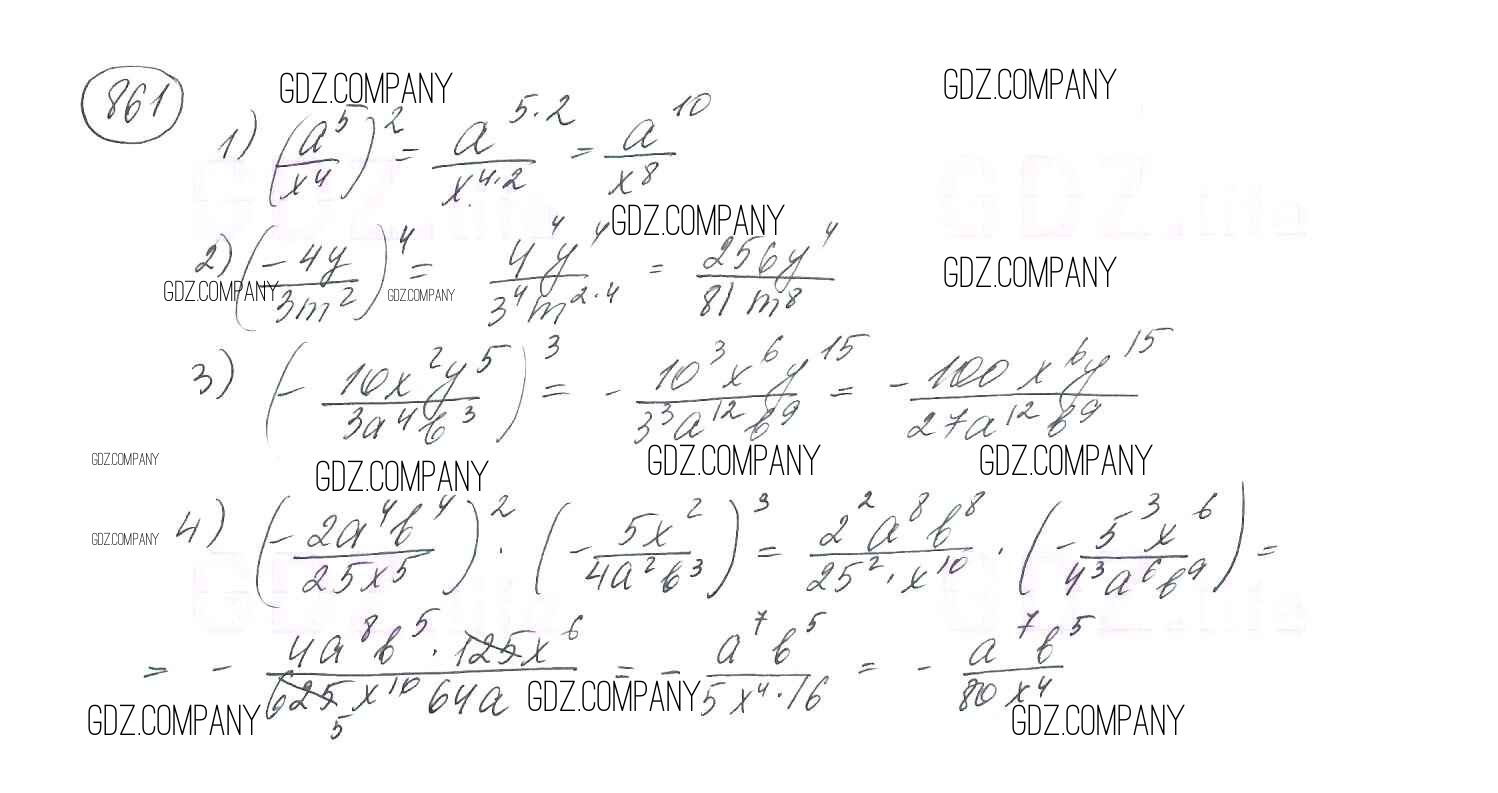 861
GDZ.COMPANY GDZ.COMPANY
1) (a⁵/x⁴)² = a⁵·²/x⁴·² = a¹⁰/x⁸
GDZ.life GDZ.life
GDZ.COMPANY
2) (-4y/3m²)⁴ = 4⁴y⁴/3⁴m²·⁴ = 256y⁴/81m⁸
GDZ.COMPANY GDZ.COMPANY GDZ.COMPANY
3) (- 10x²y⁵/3a⁴b³)³ = - 10³x⁶y¹⁵/3³a¹²b⁹ = - 100x⁶y¹⁵/27a¹²b⁹
GDZ.COMPANY GDZ.COMPANY GDZ.COMPANY GDZ.COMPANY
GDZ.COMPANY
4) (- 2a⁴b⁴/25x⁵)² · (- 5x²/4a²b³)³ = 2²a⁸b⁸/25²·x¹⁰ · (- 5³x⁶/4³a⁶b⁹) =
GDZ.life GDZ.life
= - 4a⁸b⁵·125x⁶/625x¹⁰64a = - a⁷b⁵/5x⁴·16 = - a⁷b⁵/80x⁴
5
GDZ.COMPANY GDZ.COMPANY GDZ.COMPANY